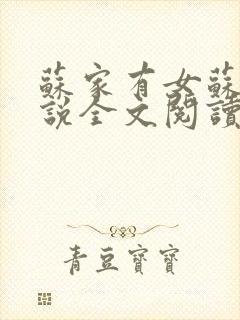 蘇家有女蘇
說全文閱讀
青豆寶寶